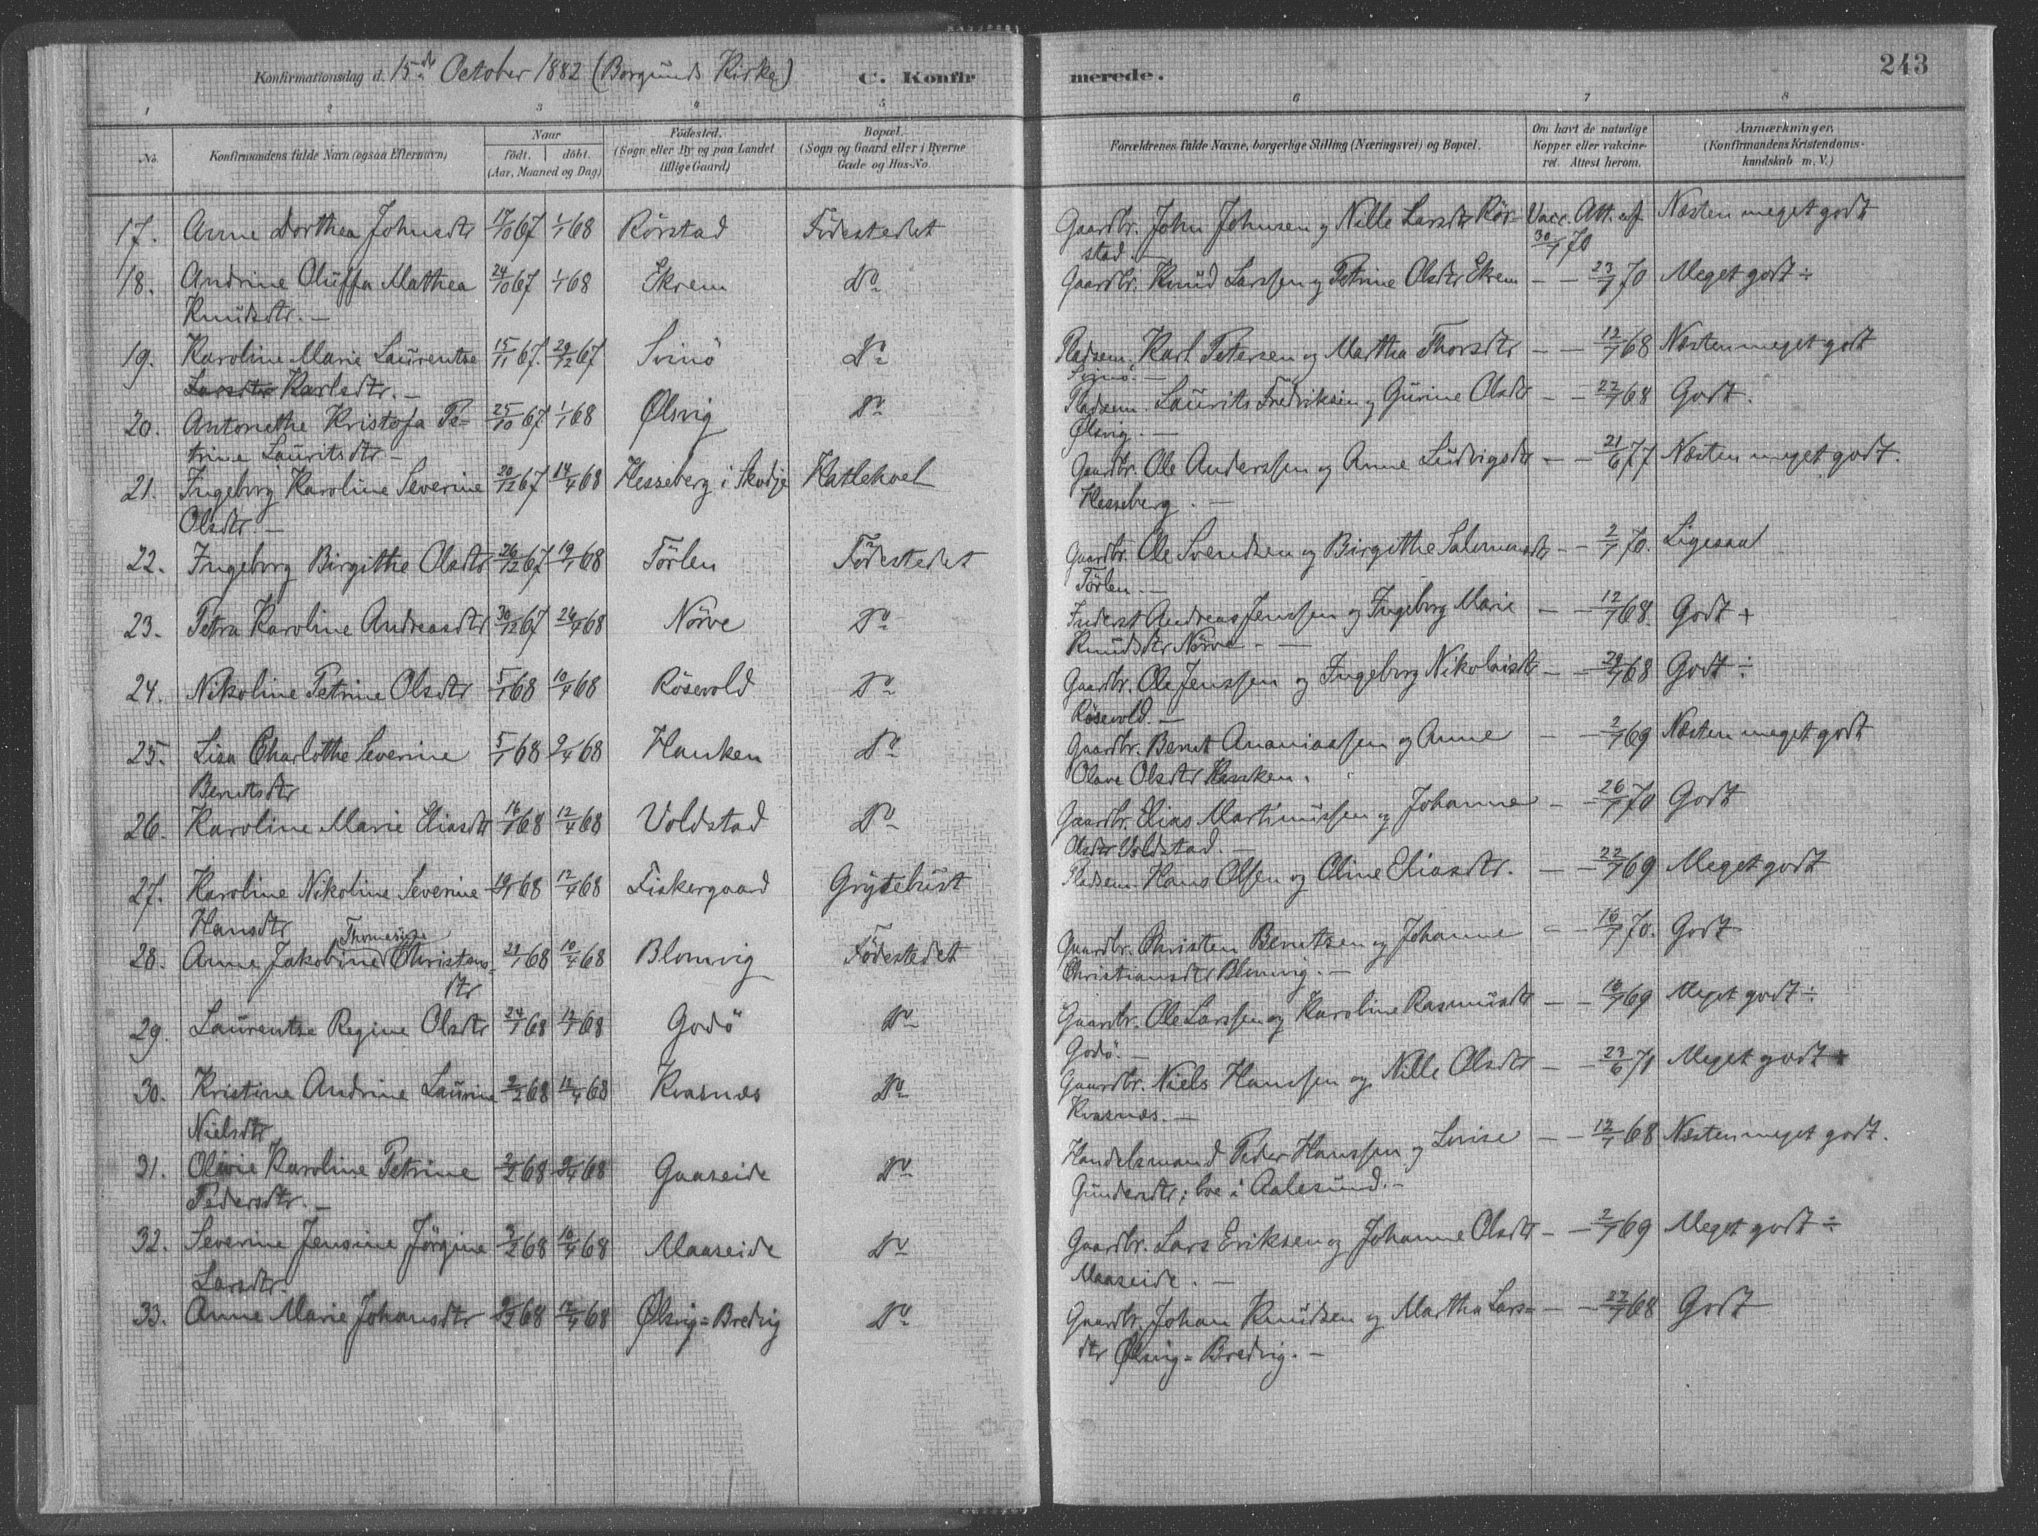 Konfirmationsdag d. 15de October 1882 (Borgunds Kirke) C. Konfirmerede. 243
1 2 3 4 5 6 7 8
No. Konfirmandens fulde Navn (ogsaa Efternavn) Naar født. døbt. (Aar, Maaned og Dag) Fødested. (Sogn eller By og paa Landet tillige Gaard) Bopæl. (Sogn og Gaard eller i Byerne Gade og Hus-No. Forældrenes fulde Navne, borgerlige Stilling (Næringsvei) og Bopæl. Om havt de naturlige Kopper eller vakcineret. Attest herom. Anmærkninger. (Konfirmandens Kristendomskundskab m. V.)
17. Anne Dorthea Johnsdtr 17/10 67 1/1 68 Rörstad Födestedet Gaardbr. John Johnsen og Nille Larsdtr Rör- Vacc. Att. af 30/7 70 Næsten meget godt
stad. —
18. Andrine Oluffa Mathea 24/10 67 1/1 68 Ekrem Do Gaardbr. Knud Larssen og Petrine Olsdtr Ekrem — — 23/7 70 Meget godt ÷
Knudsdtr. —
19. Karoline Marie Laurentse 15/11 67. 29/12 67 Svinö Do Pladsem. Karl Petersen og Martha Thorsdtr — — 12/7 68 Næsten meget godt
Larsdtr Karlsdtr. — Svinö. —
20. Antonethe Kristofa Pe- 25/10 67 1/1 68 Ølsvig Do Pladsem. Laurits Fredriksen og Gurine Olsdtr — — 22/7 68 Godt.
trine Lauritsdtr — Ølsvig. —
21. Ingeborg Karoline Severine 20/12 67 14/4 68 Hesseberg i Skodje Hatlehoel Gaardbr. Ole Anderssen og Anne Ludvigsdtr — — 21/6 77 Næsten meget godt.
Olsdtr. — Hesseberg. —
22. Ingeborg Birgitha Olsdtr 26/12 67 19/1 68 Törlen Födestedet Gaardbr. Ole Svendsen og Birgithe Salomonsdtr — — 2/7 70. Ligesaa
Törlen. —
23. Petra Karoline Andreasdtr 30/12 67 26/4 68 Nörve Do Inderst Andreas Jenssen og Ingeborg Marie — — 12/7 68. Godt +
Knudsdtr Nörve. —
24. Nikoline Petrine Olsdtr 5/1 68 10/4 68 Rösevold Do Gaardbr. Ole Jenssen og Ingeborg Nikolaisdtr — — 29/7 68 Godt ÷
Rösevold. —
25. Lisa Charlotthe Severine 5/1 68 9/4 68 Hanken Do Gaardbr. Bernt Ananiassen og Anne — — 2/7 69 Næsten meget godt
Berntsdtr Olave Olsdtr Hanken.
26. Karoline Marie Eliasdtr 16/1 68 12/4 68 Voldstad Do Gaardbr. Elias Martinussen og Johanne — — 26/7 70 Godt
Olsdtr Voldstad. —
27. Karoline Nikoline Severine 19/1 68 12/4 68 Fiskergaard Grytebust Pladsem. Hans Olsen og Oline Eliasdtr. — — 22/7 69 Meget godt
Hansdtr
28. Anne Jakobine Thomasine Christens- 23/1 68 10/4 68 Blomvig Födestedet Gaardbr. Christen Berntsen og Johanne — 16/7 70. Godt
dtr Christiansdtr Blomvig. —
29. Laurentse Regine Olsdtr 24/1 68 12/4 68 Godö Do Gaardbr. Ole Larssen og Karoline Rasmusdtr — — 10/7 69 Meget godt ÷
Godö. —
30. Kristine Andrine Laurine 2/2 68 12/4 68 Kvasnes Do Gaardbr. Niels Hanssen og Nille Olsdtr — — 23/6 71 Meget godt +
Nielsdtr Kvasnæs. —
31. Olivie Karoline Petrine 2/2 68 9/4 68 Gaaseide Do Handelsmand Peder Hanssen og Lovise — — 12/7 68 Næsten meget godt.
Pedersdtr. — Gundersdtr; boe i Aalesund. —
32. Severine Jensine Jörgine 3/2 68 10/4 68 Maaseide Do Gaardbr. Lars Eriksen og Johanne Olsdtr — — 2/7 69 Meget godt ÷
Larsdtr. Maaseide. —
33. Anne Marie Johansdtr 9/2 68 12/4 68 Ølsvig=Bredvig Do Gaardbr. Johan Knudsen og Martha Lars= — — 22/7 68 Godt
dtr Ølsvig=Bredvig. —